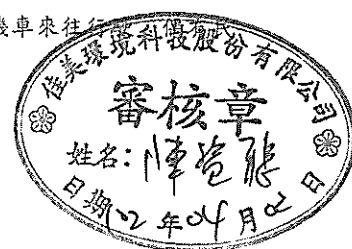 機車來往行
佳美環境科技股份有限公司
審核章
姓名:陳
日期102年04月02日